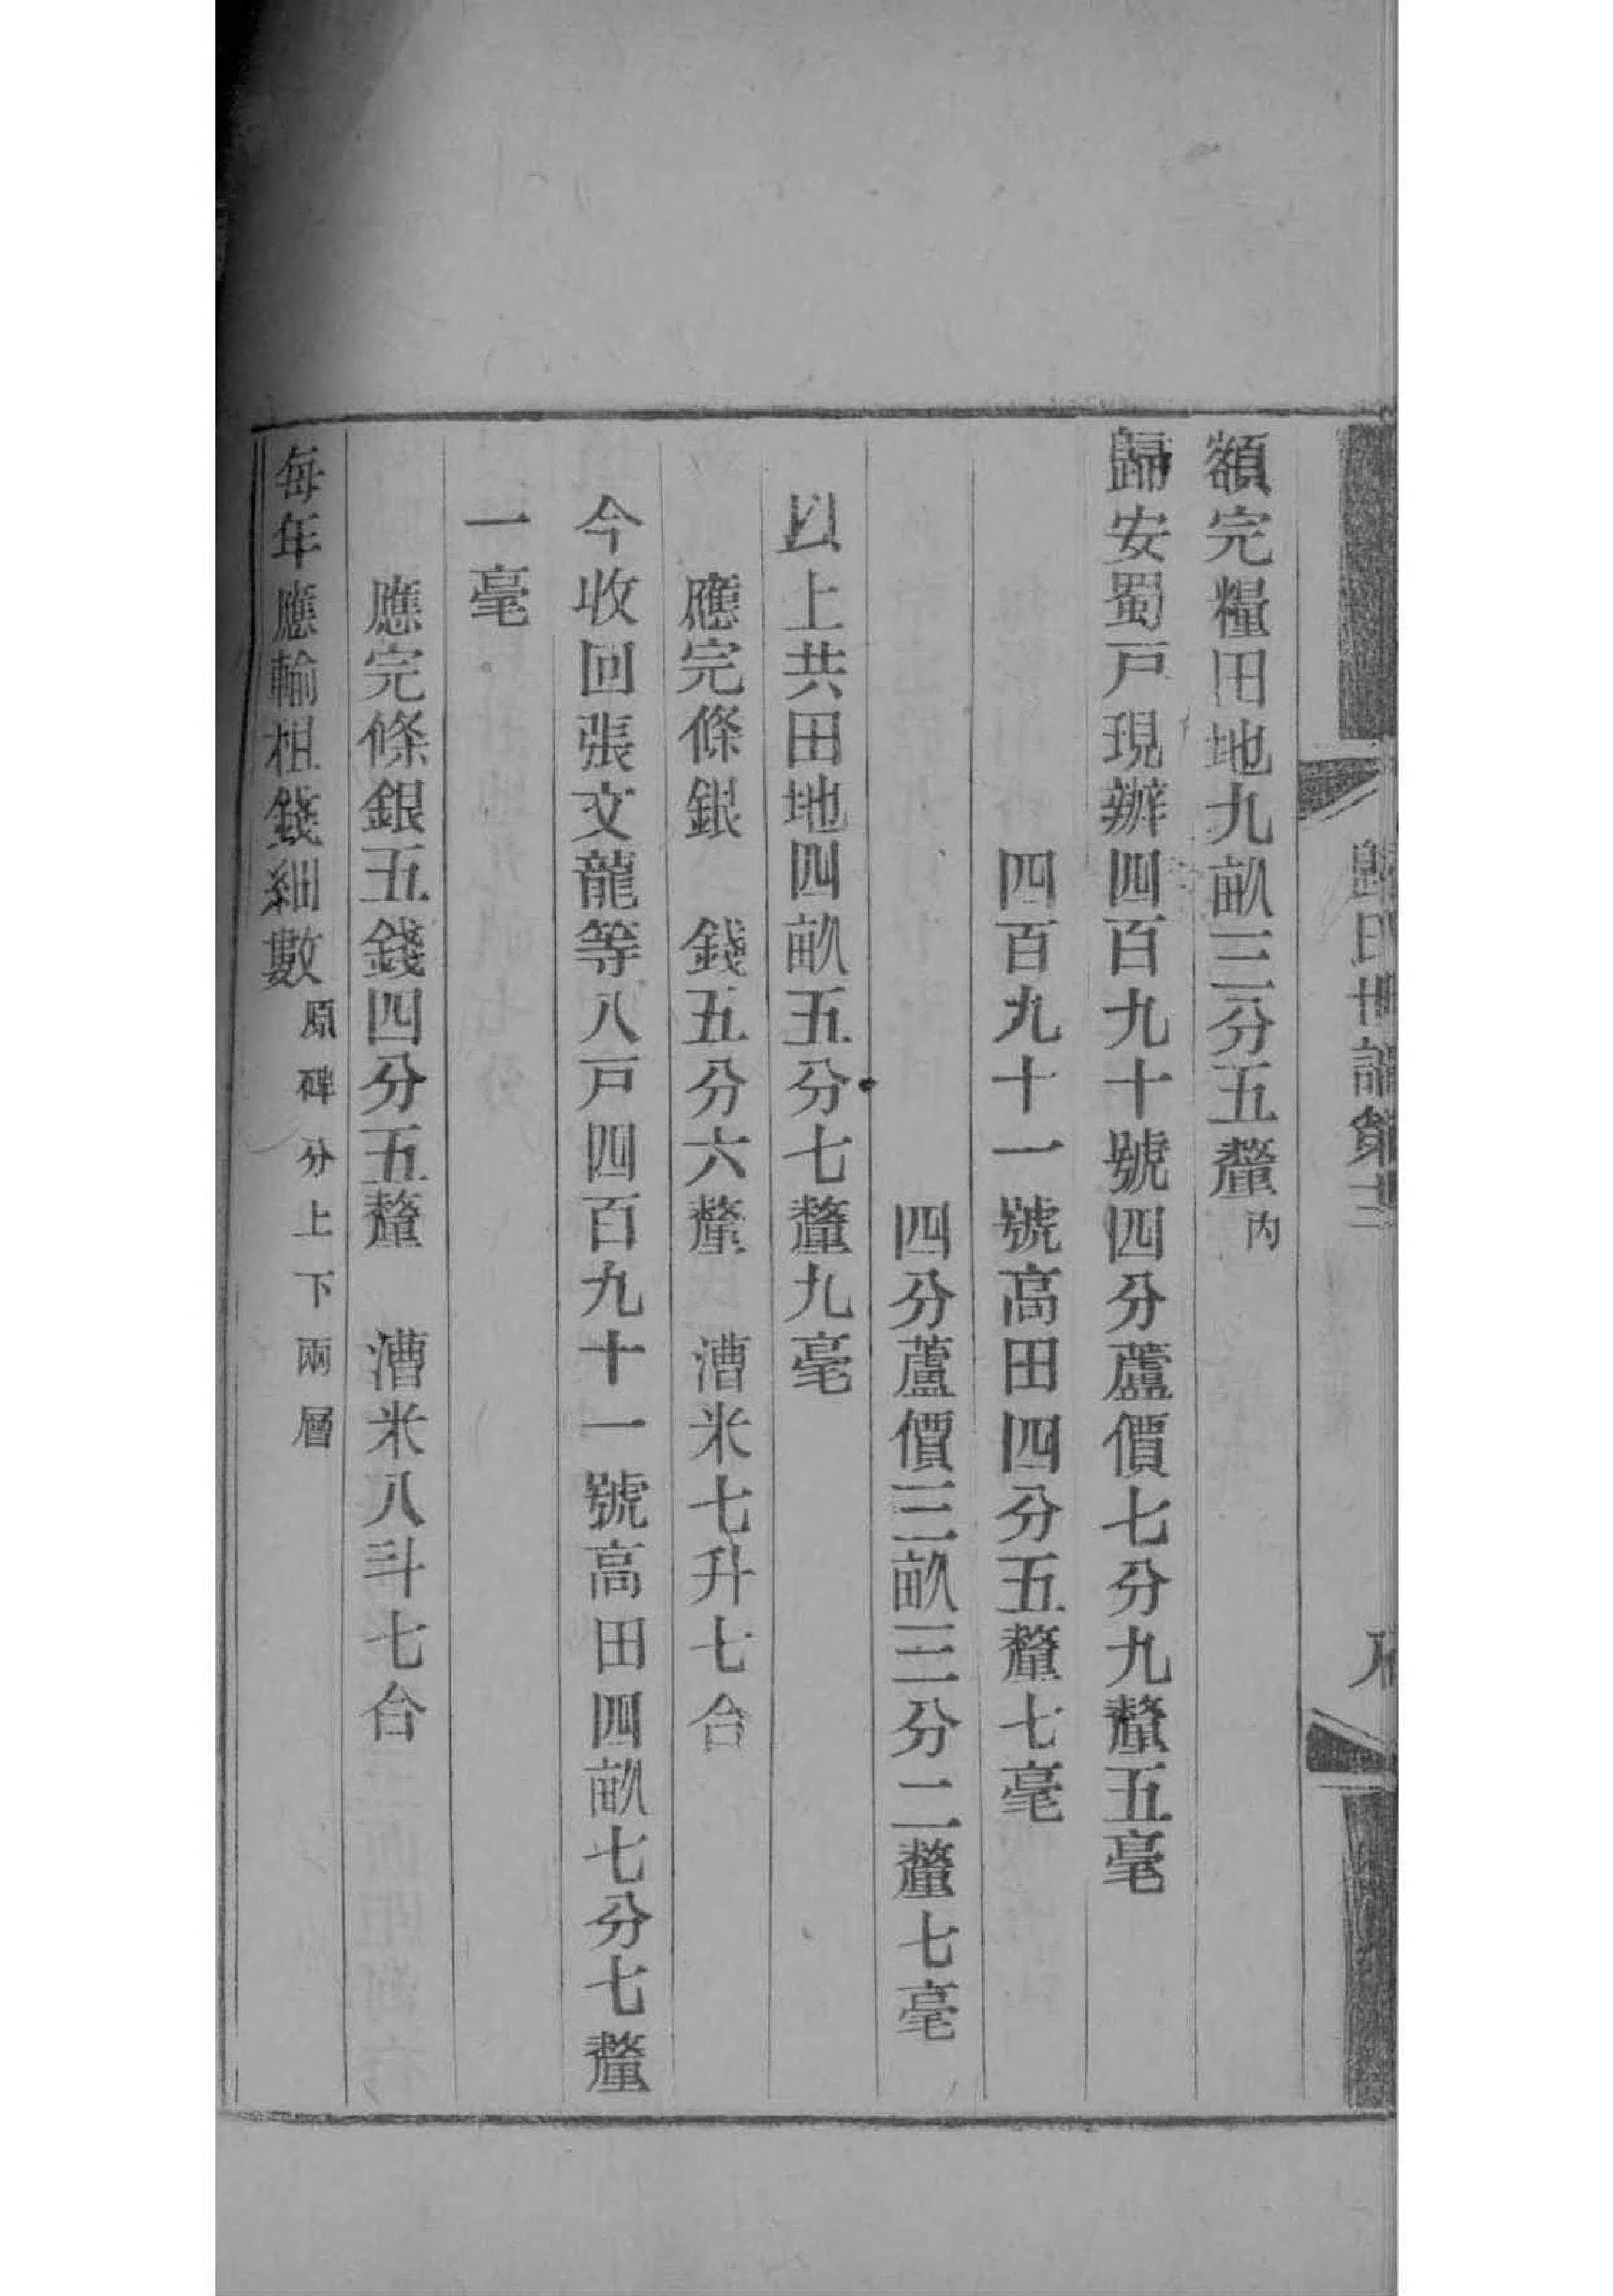 額完糧田地九畝三分五釐內
歸安蜀戸現辦四百九十號四分蘆價七分九釐五毫
四百九十一號高田四分五釐七毫
四分蘆價三畝三分二釐七毫
以上共田地四畝五分七釐九毫
應完條銀 錢五分六釐 漕米七升七合
今收回張文龍等八戸四百九十一號高田四畝七分七釐
一毫
應完條銀五錢四分五釐 漕米八斗七合
每年應輸租錢細數原碑分上下兩層